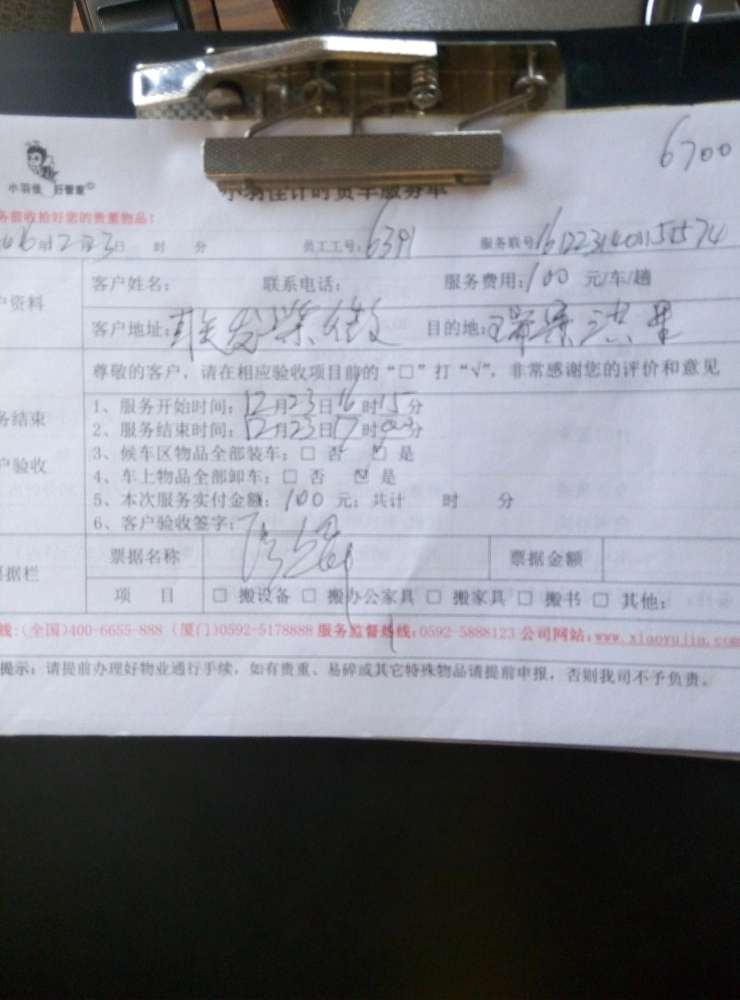 6700
小羽佳 好管家
小羽佳计时货车服务单
务前收拾好您的贵重物品！
16年12月23日 时 分 员工工号：6391 服务联号161223140115574
客户姓名： 联系电话： 服务费用：100 元/车/趟
户资料
客户地址： 目的地：瑞景
尊敬的客户，请在相应验收项目前的“□”打“√”，非常感谢您的评价和意见
1、服务开始时间：12月23日16时15分
务结束
2、服务结束时间：12月23日17时03分
3、候车区物品全部装车：□ 否 ☑ 是
户验收
4、车上物品全部卸车：□ 否 ☑ 是
5、本次服务实付金额：100 元；共计 时 分
6、客户验收签字：
票据名称 票据金额
据栏
项 目 □ 搬设备 □ 搬办公家具 □ 搬家具 □ 搬书 □ 其他：
线：(全国)400-6655-888 (厦门)0592-5178888 服务监督热线：0592-5888123 公司网站：www.xiaoyujia.com
提示：请提前办理好物业通行手续，如有贵重、易碎或其它特殊物品请提前申报，否则我司不予负责。